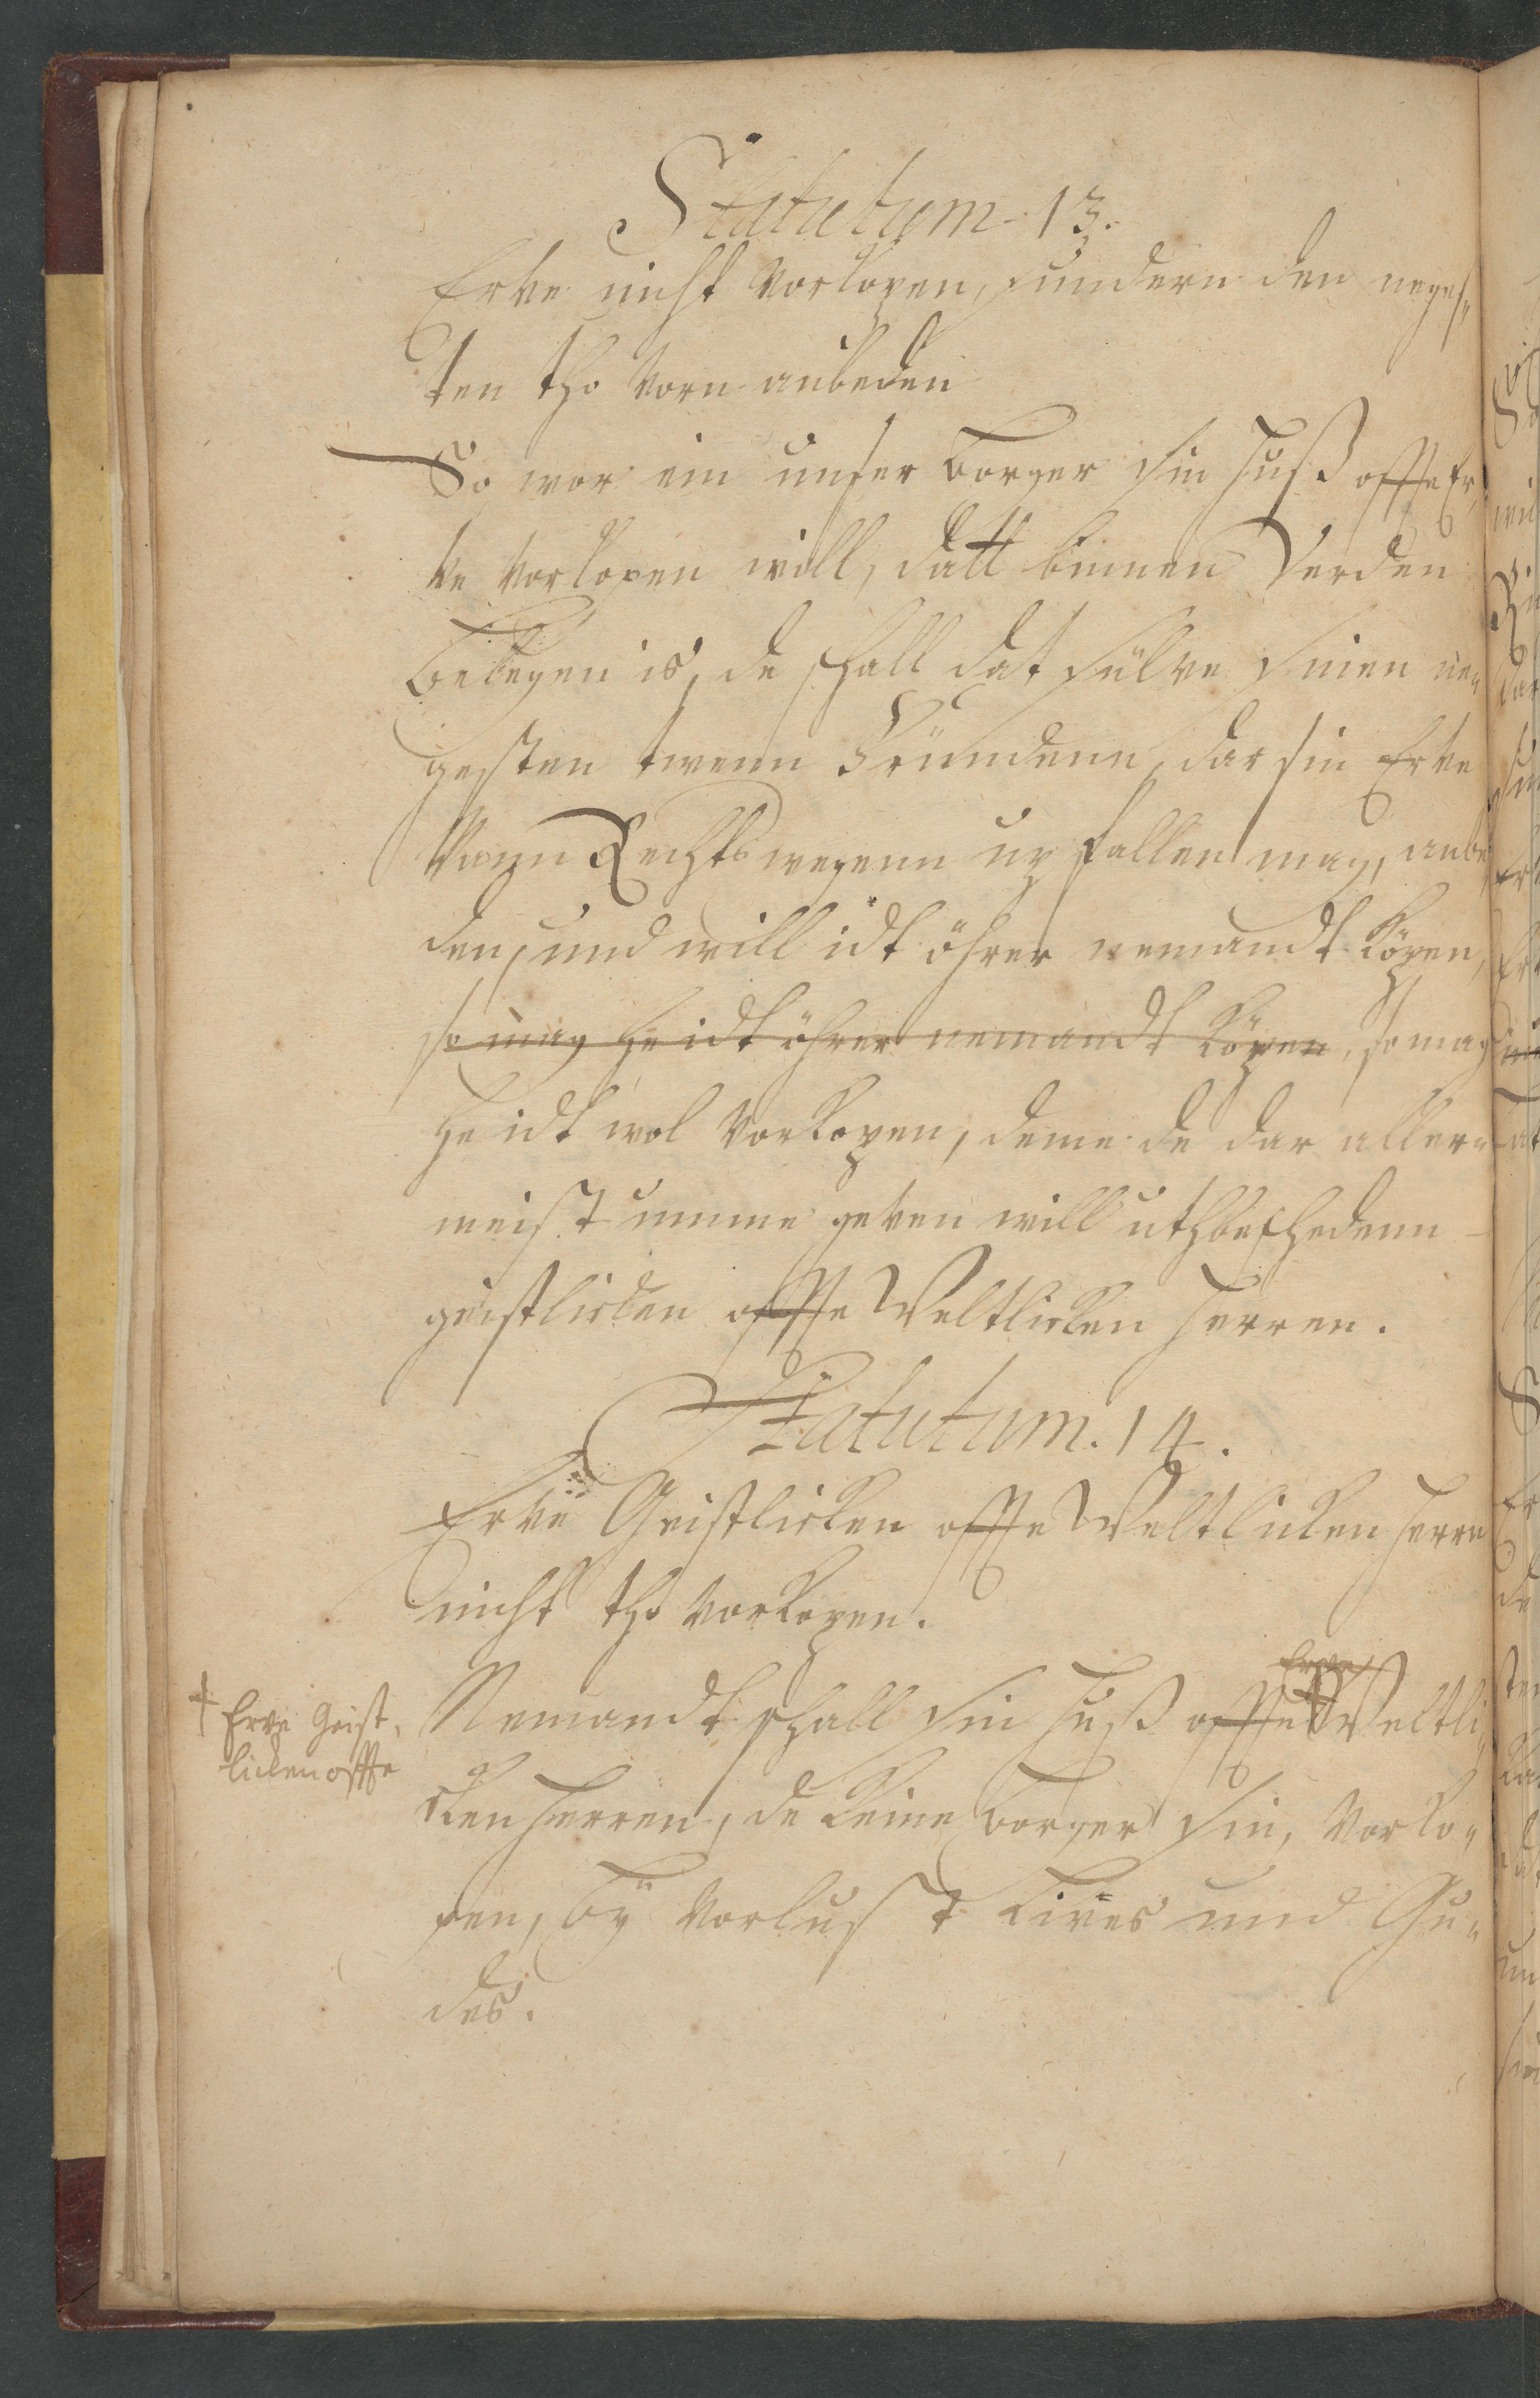 Statutum 13.
Erve nicht vorkopen, sundern den neges„
ten tho vorn anbeden
So wor ein unser Borger sin Huß offte Er„
ve vorkopen will, datt binnen Verden
belegen is, de schall dat sülve sinen ne„
gesten twenn Fründenn, dar sin Erve
vonn Rechts wegenn up fallen mag, anbe„
den, und will idt öhrer nemandt köpen,
so mag he idt öhrer nemandt köpen, so mag
he idt wol vorkopen, deme de dar aller„
meist umme geven will uthbeschedenn
geistlicken offte Weltlicken Herren.
Statutum. 14.
Erve Geistlicken offte Weltlicken Herrn
nicht tho vorkopen.
Erve
Nemandt schall sin Huß offte † Weltli„
cken Herren, de keine Borger sin, vorko„
pen, by vorlust Lives und Gu„
des.
† Erve Geist„
licken offte